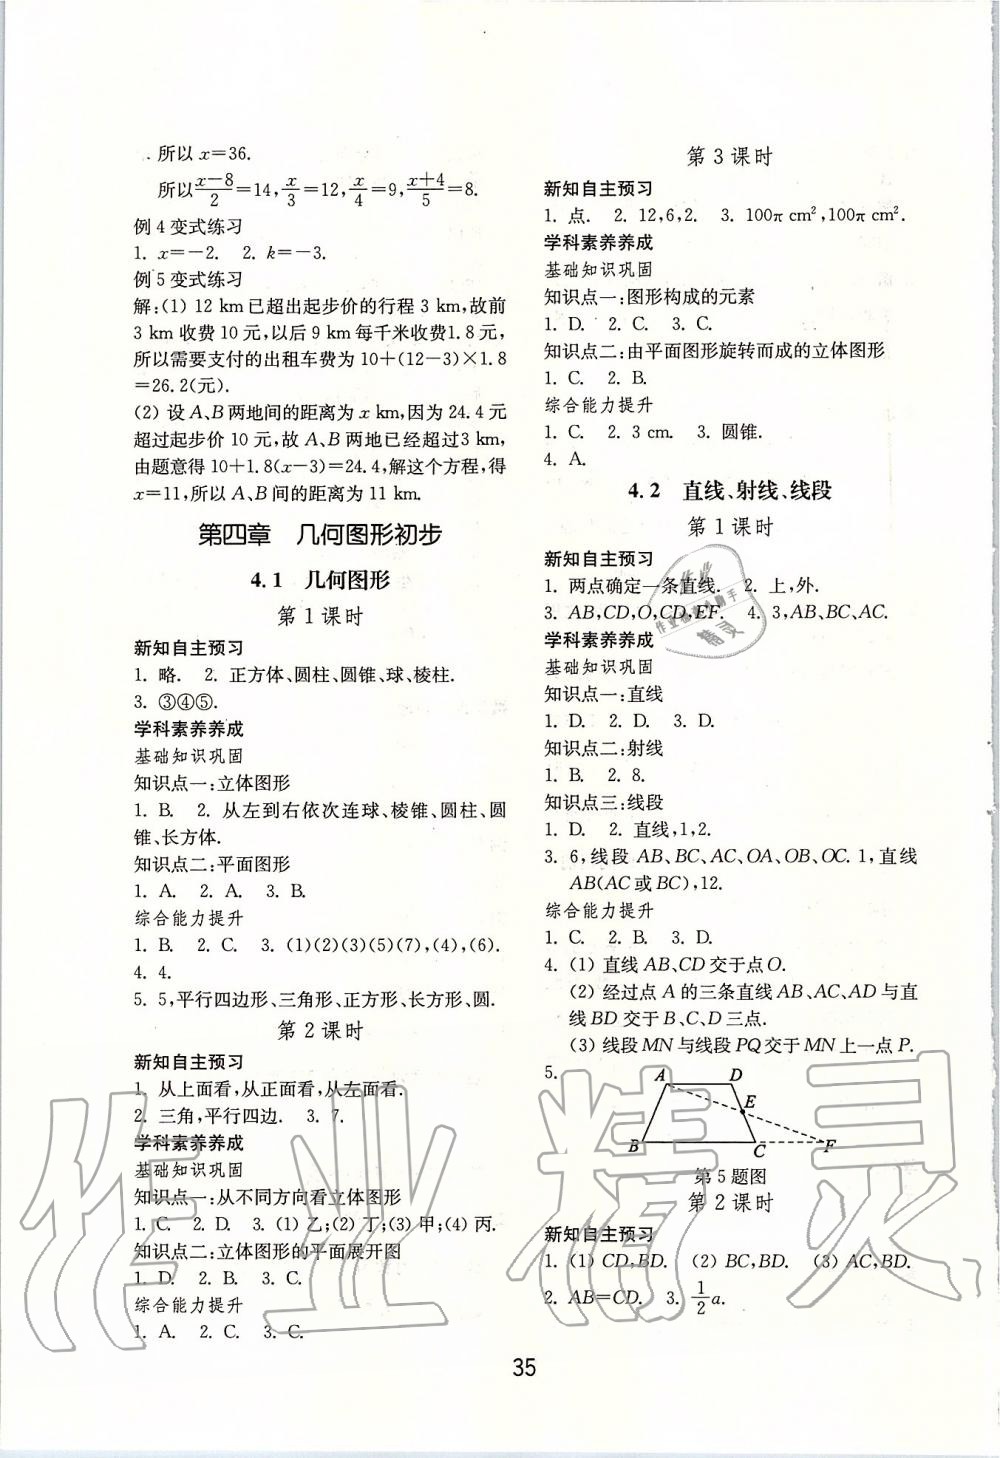 所以 x=36.
所以(x-8)/2=14,x/3=12,x/4=9,(x+4)/5=8.
例 4 变式练习
1. x=-2. 2. k=-3.
例 5 变式练习
解:(1) 12 km已超出起步价的行程 3 km,故前
3 km 收费 10 元,以后 9 km 每千米收费1.8 元,
所以需要支付的出租车费为 10+(12-3)×1.8
=26.2(元).
(2) 设 A、B 两地间的距离为 x km,因为 24.4 元
超过起步价 10 元,故 A、B 两地已经超过3 km,
由题意得 10+1.8(x-3)=24.4,解这个方程,得
x=11,所以 A、B 间的距离为 11 km.
第四章 几何图形初步
4.1 几何图形
第 1 课时
新知自主预习
1. 略. 2. 正方体、圆柱、圆锥、球、棱柱.
3. ③④⑤.
学科素养养成
基础知识巩固
知识点一:立体图形
1. B. 2. 从左到右依次连球、棱锥、圆柱、圆
锥、长方体.
知识点二:平面图形
1. A. 2. A. 3. B.
综合能力提升
1. B. 2. C. 3. (1)(2)(3)(5)(7),(4),(6).
4. 4.
5. 5,平行四边形、三角形、正方形、长方形、圆.
第 2 课时
新知自主预习
1. 从上面看,从正面看,从左面看.
2. 三角,平行四边. 3. 7.
学科素养养成
基础知识巩固
知识点一:从不同方向看立体图形
1. C. 2. D. 3. (1) 乙;(2) 丁;(3) 甲;(4) 丙.
知识点二:立体图形的平面展开图
1. D. 2. B. 3. C.
综合能力提升
1. A. 2. C. 3. C.
第 3 课时
新知自主预习
1. 点. 2. 12,6,2. 3. 100π cm²,100π cm².
学科素养养成
基础知识巩固
知识点一:图形构成的元素
1. D. 2. C. 3. C.
知识点二:由平面图形旋转而成的立体图形
1. C. 2. B.
综合能力提升
1. C. 2. 3 cm. 3. 圆锥.
4. A.
4.2 直线、射线、线段
第 1 课时
新知自主预习
1. 两点确定一条直线. 2. 上,外.
3. AB,CD,O,CD,EF. 4. 3,AB、BC、AC.
学科素养养成
基础知识巩固
知识点一:直线
1. D. 2. D. 3. D.
知识点二:射线
1. B. 2. 8.
知识点三:线段
1. D. 2. 直线,1,2.
3. 6,线段 AB、BC、AC、OA、OB、OC. 1,直线
AB(AC 或 BC),12.
综合能力提升
1. C. 2. B. 3. D.
4. (1) 直线 AB、CD 交于点 O.
(2) 经过点 A 的三条直线 AB、AC、AD 与直
线 BD 交于 B、C、D 三点.
(3) 线段 MN 与线段 PQ 交于 MN 上一点 P.
5.
A D
E
B C F
第 5 题图
第 2 课时
新知自主预习
1. (1) CD,BD. (2) BC,BD. (3) AC,BD.
2. AB=CD. 3. 1/2 a.
35
作业精灵